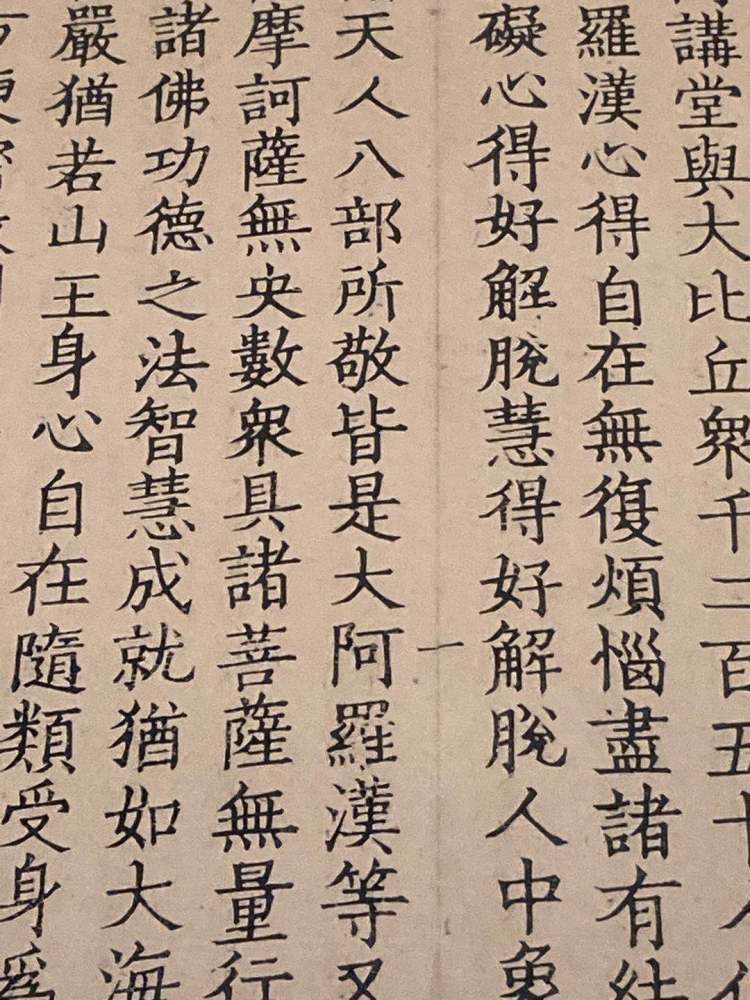 講堂與大比丘衆千二百五十人
羅漢心得自在無復煩惱盡諸有結
礙心得好解脫慧得好解脫人中象
一
天人八部所敬皆是大阿羅漢等又
摩訶薩無央數衆具諸菩薩無量行
諸佛功德之法智慧成就猶如大海
嚴猶若山王身心自在隨類受身爲